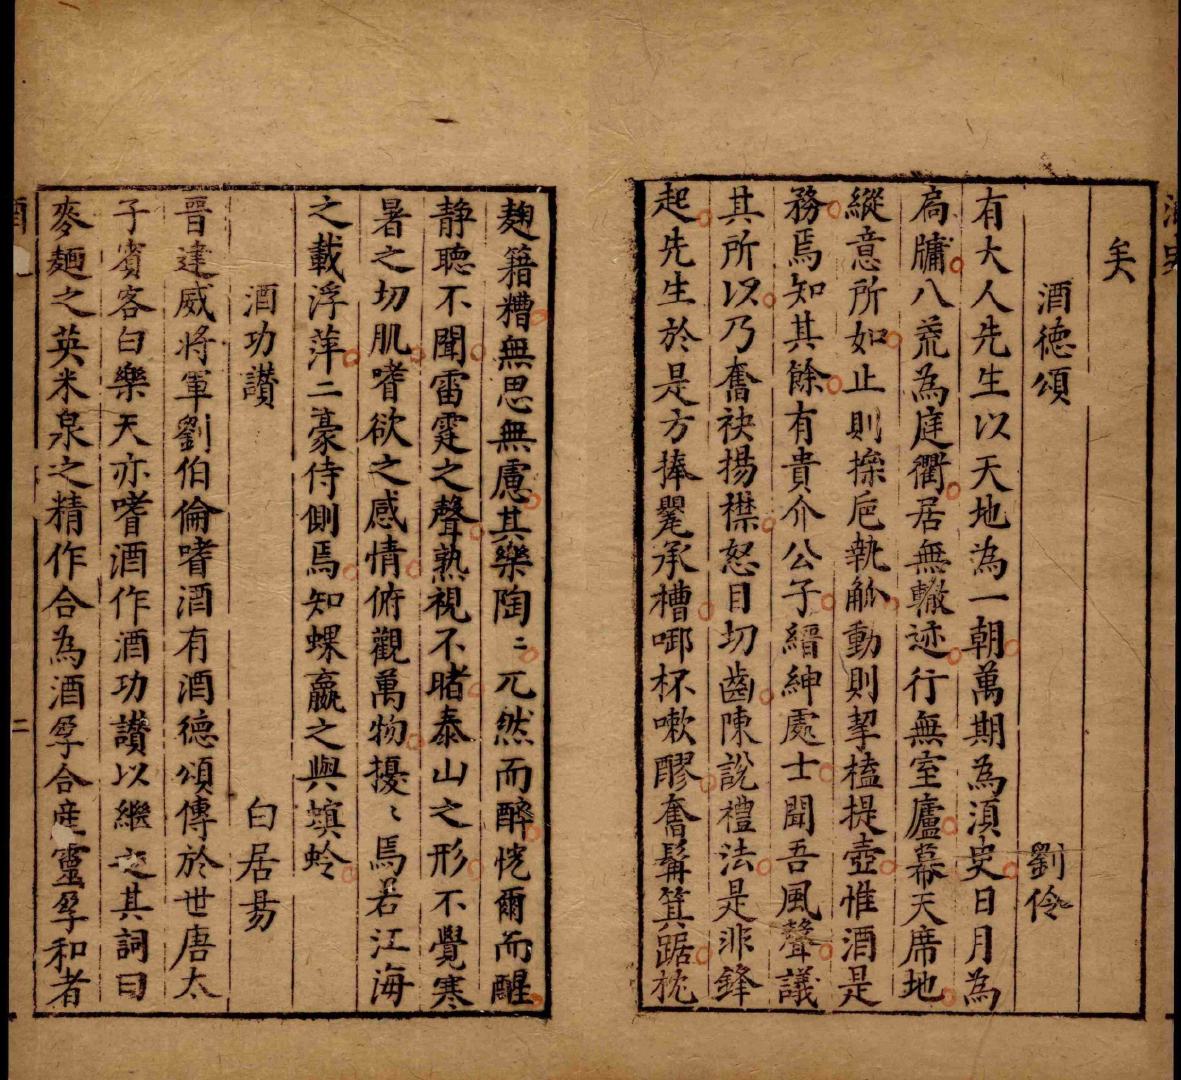 矣
酒德頌
劉伶
有大人先生以天地為一朝萬期為湏史日月為
扄牖八荒為庭衢居無轍迹行無室廬幕天席地
縱意所如止則操巵執觚動則挈榼提壺惟酒是
務焉知其餘有貴介公子縉紳處士聞吾風聲議
其所以乃奮袂揚襟怒目切齒陳說禮法是非鋒
起先生於是方捧甖承槽啣杯嗽醪奮髯箕踞枕
麹籍糟無思無慮其樂陶〻兀然而醉恍爾而醒
静聽不聞雷霆之聲熟視不睹泰山之形不覺寒
暑之切肌嗜欲之感情俯觀萬物擾〻焉若江海
之載浮萍二豪侍側焉知蜾蠃之與螟蛉
酒功讃
白居易
晉建威將軍劉伯倫嗜酒有酒德頌傳於世唐太
子賓客白樂天亦嗜酒作酒功讃以繼之其詞曰
麥麯之英米泉之精作合為酒孕合産靈孕和者
二